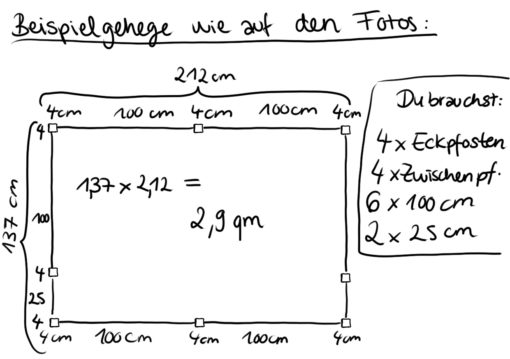 Beispielgehege wie auf den Fotos:
212 cm
4cm 100 cm 4cm 100cm 4cm
137 cm
4
100
4
25
4
1,37 x 2,12 =
2,9 qm
4cm 100cm 4cm 100cm 4cm
Du brauchst:
4 x Eckpfosten
4 x Zwischenpf.
6 x 100 cm
2 x 25 cm